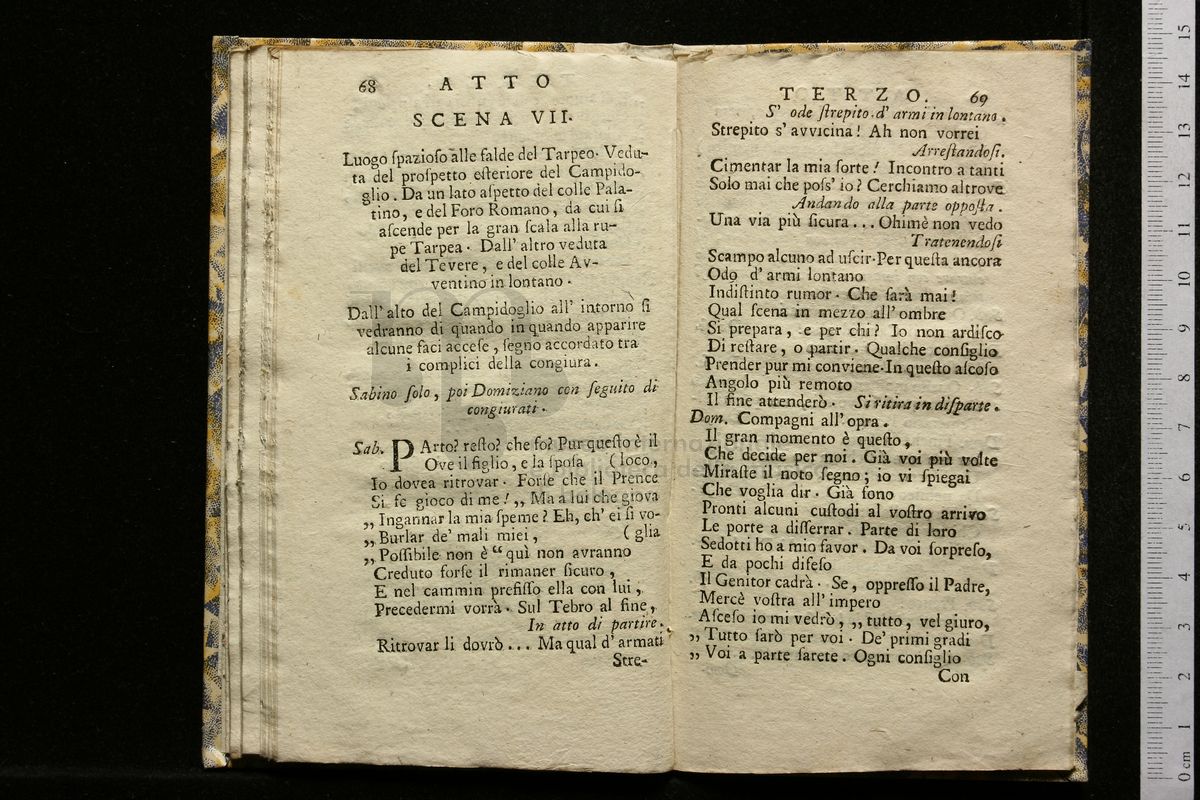 68 ATTO
SCENA VII.
Luogo ſpazioſo alle falde del Tarpeo. Vedu-
ta del proſpetto eſteriore del Campido-
glio. Da un lato aſpetto del colle Pala-
tino, e del Foro Romano, da cui ſi
aſcende per la gran ſcala alla ru-
pe Tarpea. Dall' altro veduta
del Tevere, e del colle Av-
ventino in lontano.
Dall' alto del Campidoglio all' intorno ſi
vedranno di quando in quando apparire
alcune faci acceſe, ſegno accordato tra
i complici della congiura.
Sabino ſolo, poi Domiziano con ſeguito di
congiurati.
Sab. PArto? reſto? che fo? Pur queſto è il
Ove il figlio, e la ſpoſa (loco,
Io dovea ritrovar. Forſe che il Prence
Si fe gioco di me! ,, Ma a lui che giova
,, Ingannar la mia ſpeme? Eh, ch' ei ſi vo-
,, Burlar de' mali miei, (glia
,, Poſſibile non è “ quì non avranno
Creduto forſe il rimaner ſicuro,
E nel cammin prefiſſo ella con lui,
Precedermi vorrà. Sul Tebro al fine,
In atto di partire.
Ritrovar li dovrò... Ma qual d' armati
Stre-
TERZO. 69
S' ode ſtrepito d' armi in lontano.
Strepito s' avvicina! Ah non vorrei
Arreſtandoſi.
Cimentar la mia ſorte! Incontro a tanti
Solo mai che poſs' io? Cerchiamo altrove
Andando alla parte oppoſta.
Una via più ſicura... Ohimè non vedo
Tratenendoſi
Scampo alcuno ad uſcir. Per queſta ancora
Odo d' armi lontano
Indiſtinto rumor. Che ſarà mai!
Qual ſcena in mezzo all' ombre
Si prepara, e per chi? Io non ardiſco
Di reſtare, o partir. Qualche conſiglio
Prender pur mi conviene. In queſto aſcoſo
Angolo più remoto
Il fine attenderò. Si ritira in diſparte.
Dom. Compagni all' opra.
Il gran momento è queſto,
Che decide per noi. Già voi più volte
Miraſte il noto ſegno; io vi ſpiegai
Che voglia dir. Già ſono
Pronti alcuni cuſtodi al voſtro arrivo
Le porte a diſſerrar. Parte di loro
Sedotti ho a mio favor. Da voi ſorpreſo,
E da pochi difeſo
Il Genitor cadrà. Se, oppreſſo il Padre,
Mercè voſtra all' impero
Aſceſo io mi vedrò, ,, tutto, vel giuro,
,, Tutto ſarò per voi. De' primi gradi
,, Voi a parte ſarete. Ogni conſiglio
Con
15
14
13
12
11
10
9
8
7
6
5
4
3
2
1
0 cm